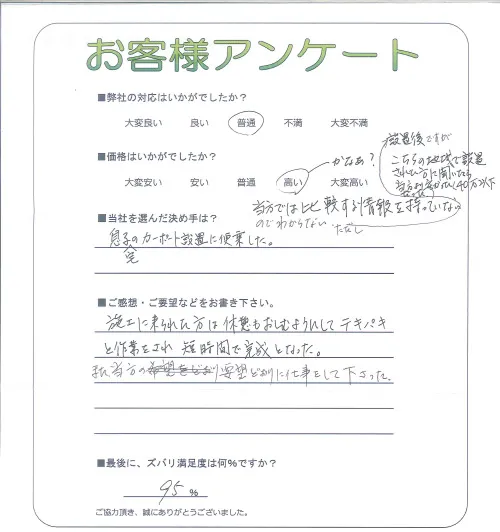 お客様アンケート
■弊社の対応はいかがでしたか？
大変良い 良い 普通 不満 大変不満
■価格はいかがでしたか？
大変安い 安い 普通 高い 大変高い
かなあ？
設置後ですが
こちらの地域で設置
された方に聞いたら
40万以下
当方では比較する情報を持っていない
のでわからない ただし
■当社を選んだ決め手は？
息子宅のカーポート設置に便乗した。
■ご感想・ご要望などをお書き下さい。
施工に来られた方は休憩もおしむようにしてテキパキ
と作業をされ 短時間で完成となった。
又、当方の希望をどおり要望どおりに仕事をして下さった。
■最後に、ズバリ満足度は何%ですか？
95 %
ご協力頂き、誠にありがとうございました。